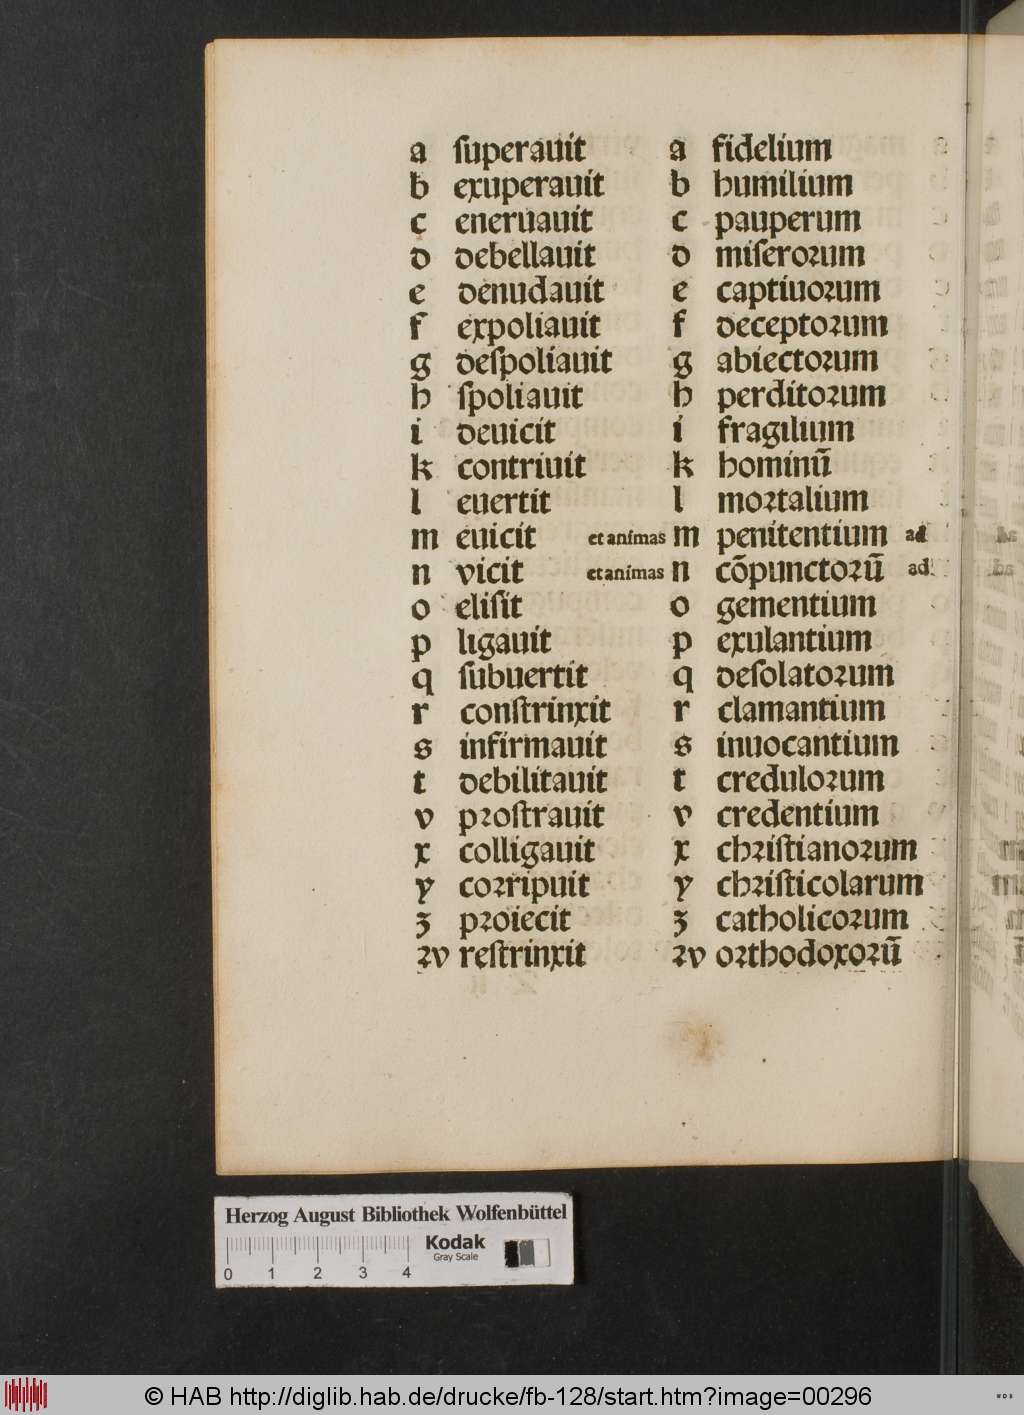 a ſuperauit a fidelium
b exuperauit b humilium
c eneruauit c pauperum
d debellauit d miſeroꝛum
e denudauit e captiuoꝛum
f expoliauit f deceptoꝛum
g deſpoliauit g abiectoꝛum
h ſpoliauit h perditoꝛum
i deuicit i fragilium
k contriuit k hominū
l euertit l moꝛtalium
m euicit et animas m penitentium ad
n vicit et animas n cōpunctoꝛū ad
o eliſit o gementium
p ligauit p exulantium
q ſubuertit q deſolatoꝛum
r conſtrinxit r clamantium
s infirmauit s inuocantium
t debilitauit t creduloꝛum
v pꝛoſtrauit v credentium
x colligauit x chꝛiſtianoꝛum
y coꝛripuit y chꝛiſticolarum
ʒ pꝛoiecit ʒ catholicoꝛum
ꝛv reſtrinxit ꝛv oꝛthodoxoꝛū
Herzog August Bibliothek Wolfenbüttel
Kodak
Gray Scale
0 1 2 3 4
© HAB http://diglib.hab.de/drucke/fb-128/start.htm?image=00296